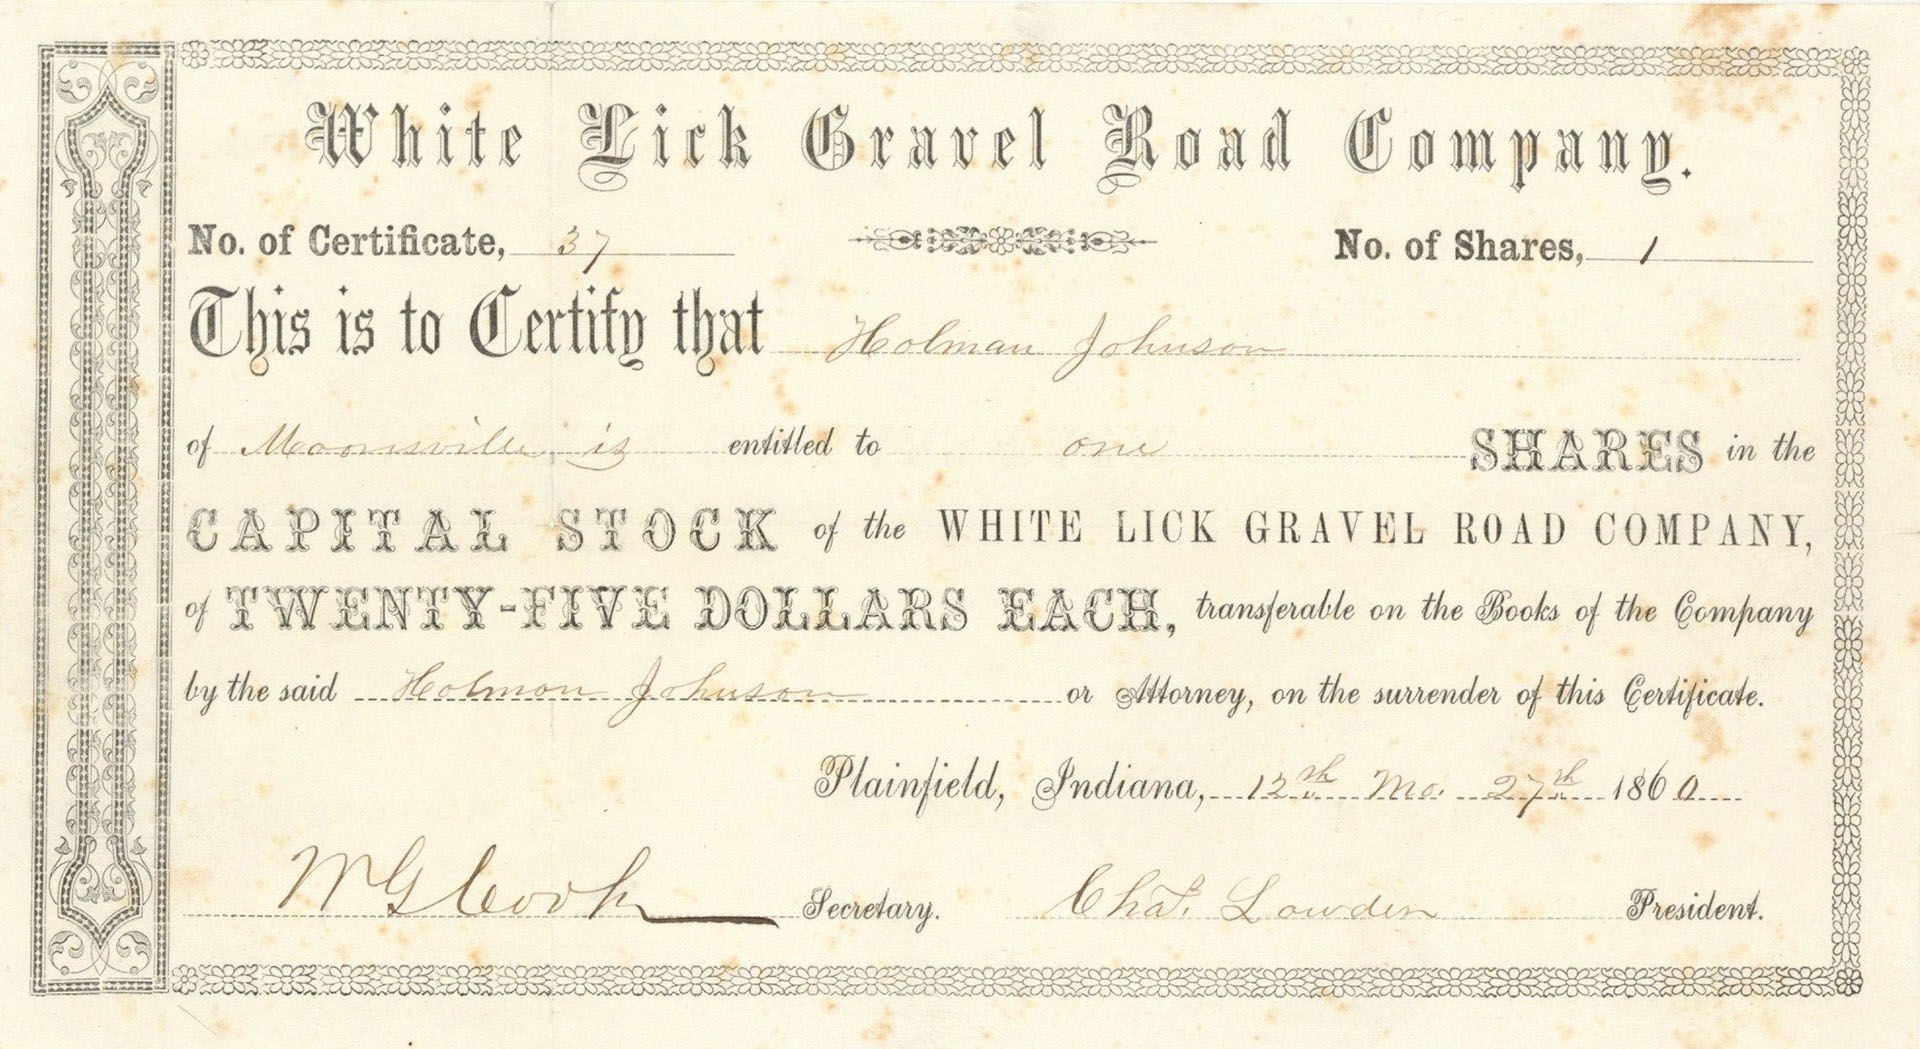 White Lick Gravel Road Company.
No. of Certificate, 37 No. of Shares, 1
This is to Certify that Holman Johnson
of Mooresville is entitled to one SHARES in the
CAPITAL STOCK of the WHITE LICK GRAVEL ROAD COMPANY,
of TWENTY-FIVE DOLLARS EACH, transferable on the Books of the Company
by the said Holman Johnson or Attorney, on the surrender of this Certificate.
Plainfield, Indiana, 12th Mo. 27th 1860
W G Cook Secretary. Chas. Lowden President.